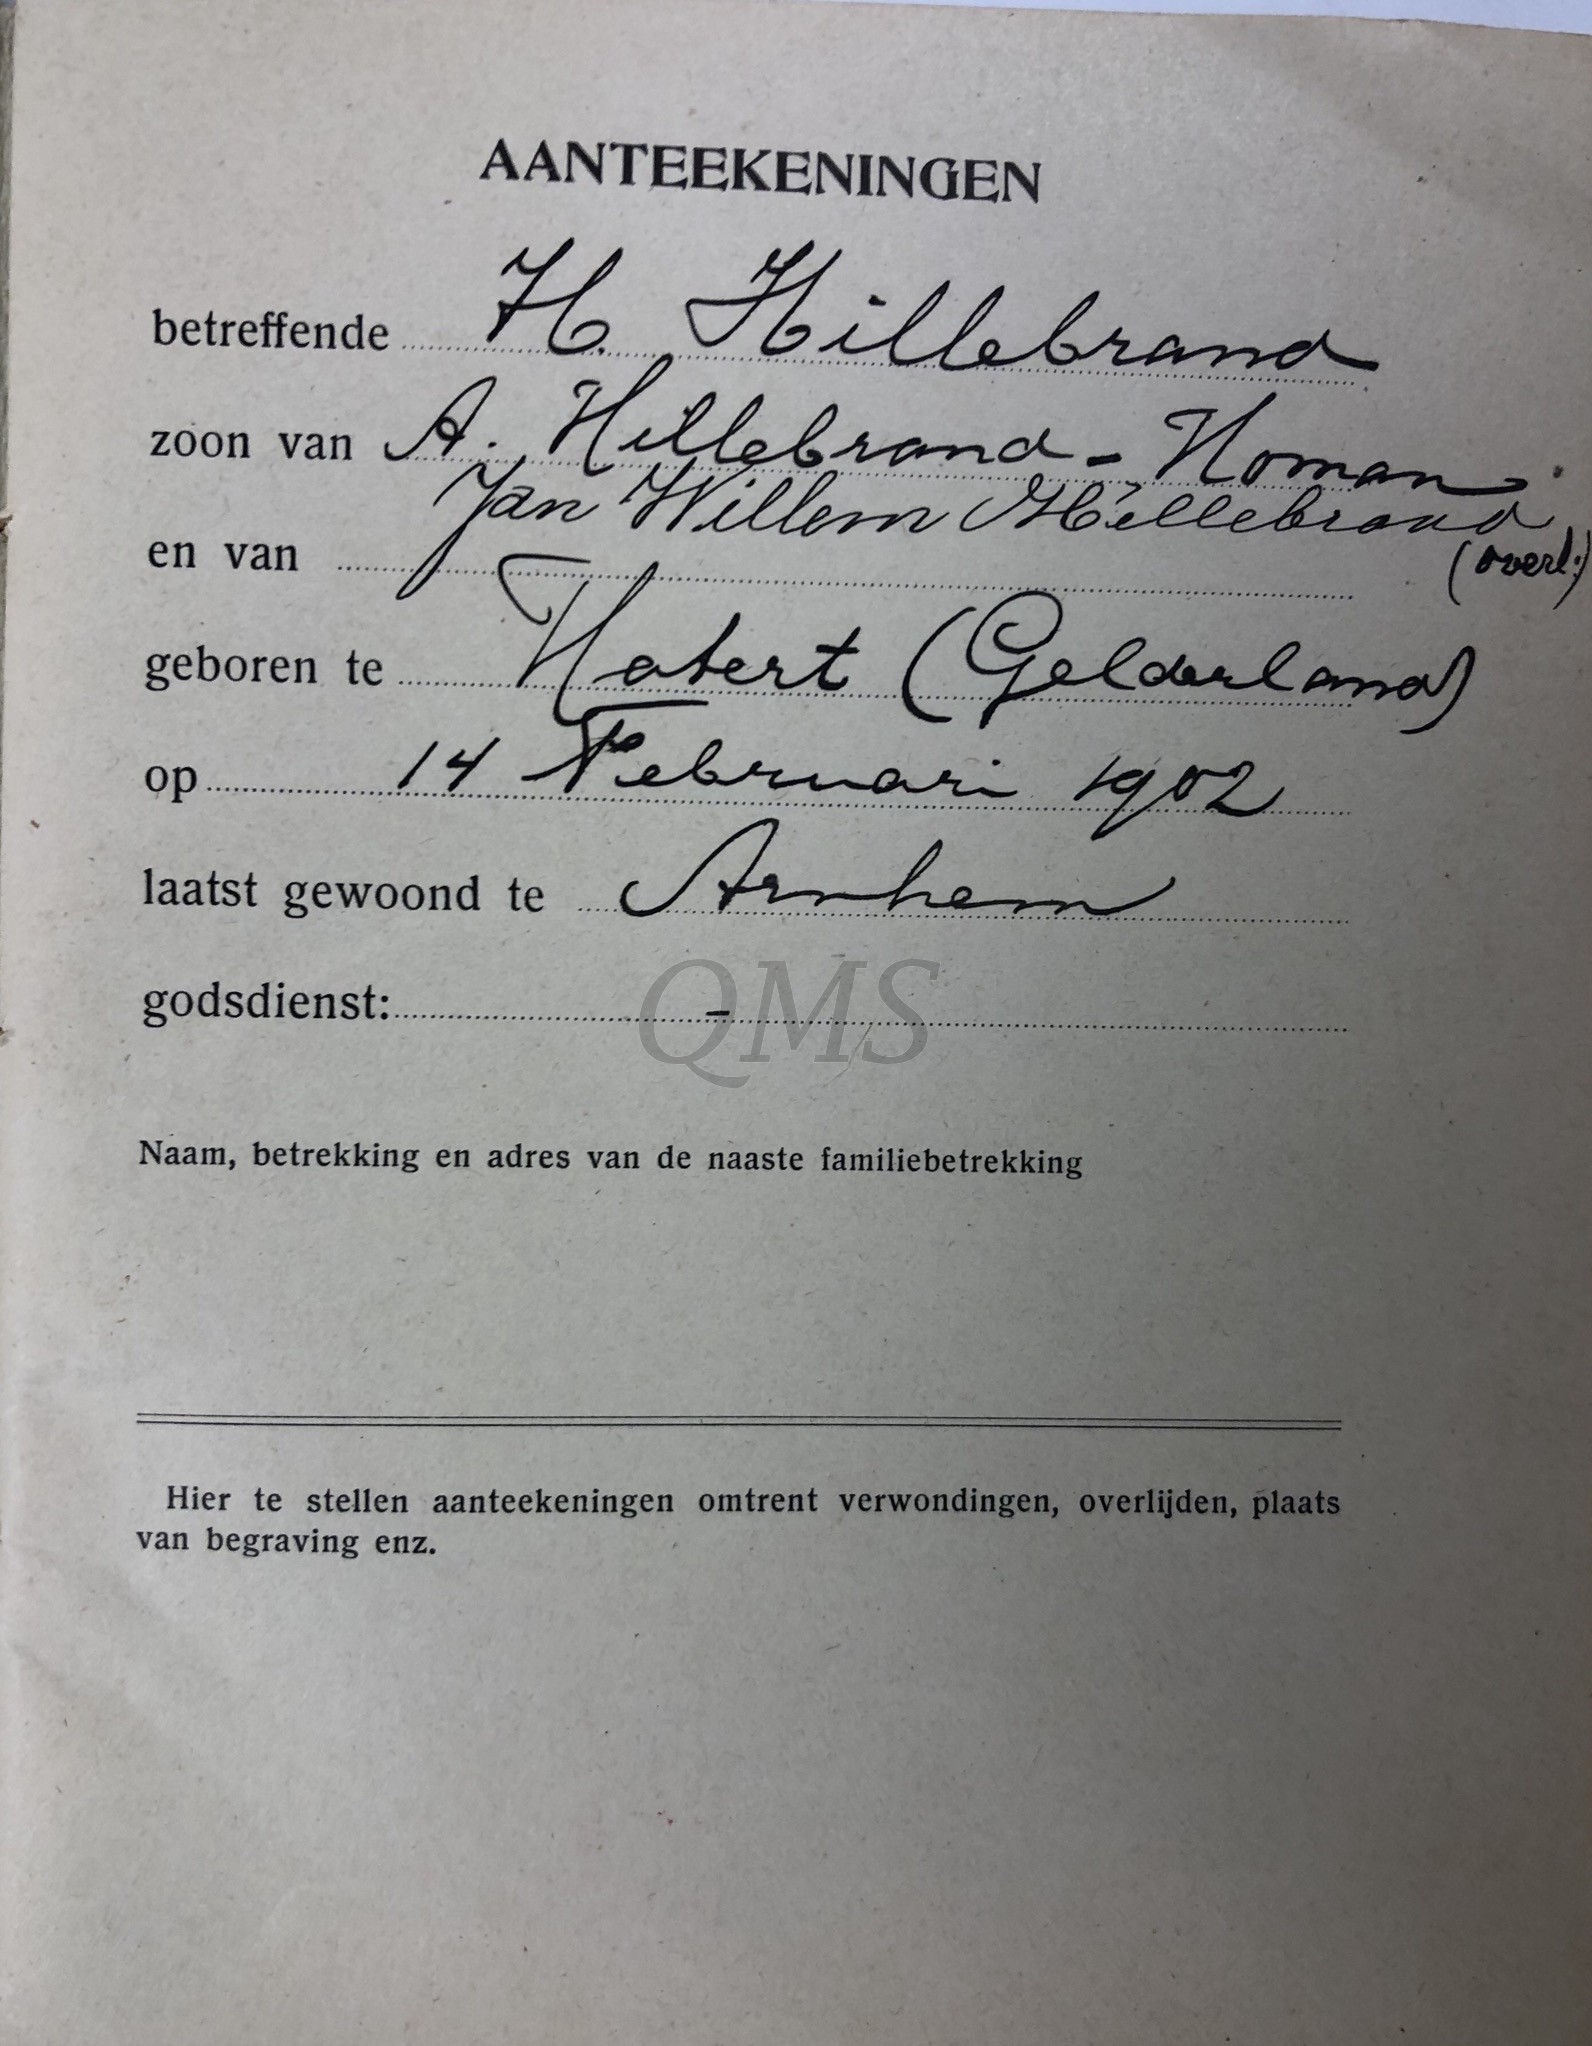 AANTEEKENINGEN
betreffende H. Hillebrand
zoon van A. Hillebrand - Homan
en van Jan Willem Hillebrand
(overl.)
geboren te (Gelderland)
op 14 Februari 1902
laatst gewoond te Arnhem
godsdienst: -
QMS
Naam, betrekking en adres van de naaste familiebetrekking
Hier te stellen aanteekeningen omtrent verwondingen, overlijden, plaats
van begraving enz.